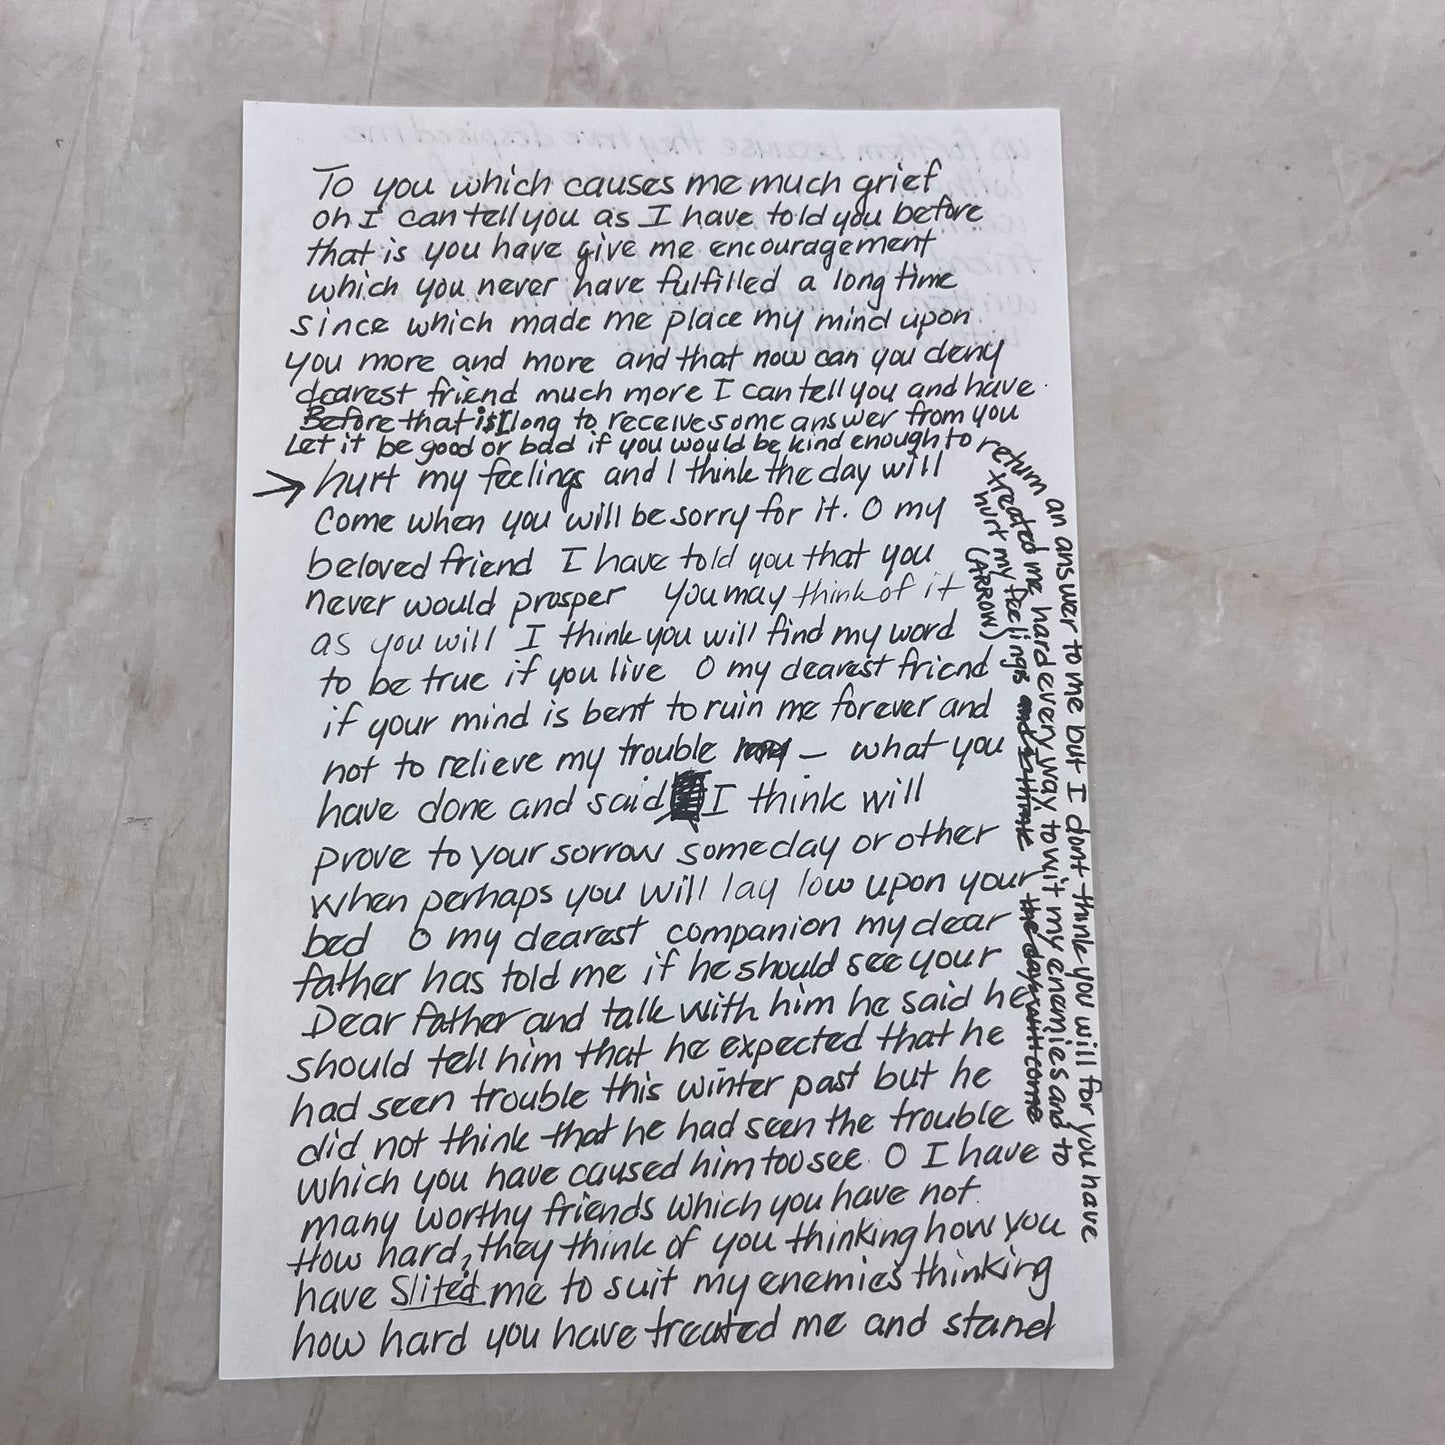 To you which causes me much grief
oh I can tell you as I have told you before
that is you have give me encouragement
which you never have fulfilled a long time
since which made me place my mind upon
you more and more and that now can you deny
dearest friend much more I can tell you and have
Before that is I long to receive some answer from you
Let it be good or bad if you would be kind enough to
return an answer to me but I dont think you will for you have
treated me hard every way to wit my enemies and to
hurt my feelings and I think the day will come
(ARROW)
→ hurt my feelings and I think the day will
come when you will be sorry for it. O my
beloved friend I have told you that you
never would prosper you may think of it
as you will I think you will find my word
to be true if you live O my dearest friend
if your mind is bent to ruin me forever and
not to relieve my trouble — what you
have done and said I think will
prove to your sorrow someday or other
when perhaps you will lay low upon your
bed O my dearest companion my dear
father has told me if he should see your
Dear father and talk with him he said he
should tell him that he expected that he
had seen trouble this winter past but he
did not think that he had seen the trouble
which you have caused him too see O I have
many worthy friends which you have not
How hard, they think of you thinking how you
have Slited me to suit my enemies thinking
how hard you have treated me and stand